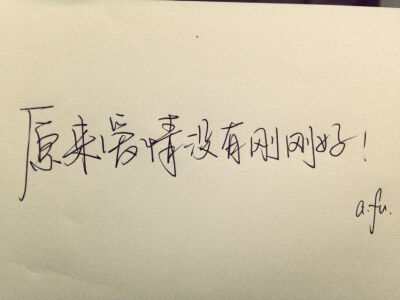 原来爱情没有刚刚好！
a.fu.